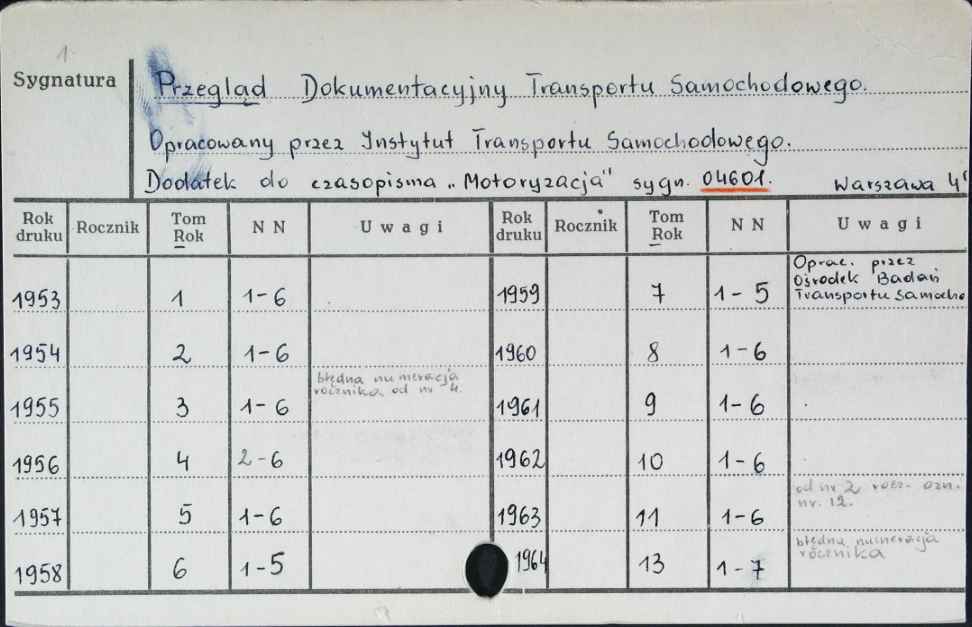 1
Sygnatura
Przegląd Dokumentacyjny Transportu Samochodowego.
Opracowany przez Instytut Transportu Samochodowego.
Dodatek do czasopisma „Motoryzacja" sygn. 04601. Warszawa 4°
Rok druku Rocznik Tom Rok N N Uwagi Rok druku Rocznik Tom Rok N N Uwagi
1953 1 1-6 1959 7 1-5 Oprac. przez Ośrodek Badań Transportu Samocho
1954 2 1-6 1960 8 1-6
1955 3 1-6 błędna numeracja rocznika od nr 4. 1961 9 1-6
1956 4 2-6 1962 10 1-6
1957 5 1-6 1963 11 1-6 od nr 2 rocz. ozn. nr. 12.
1958 6 1-5 1964 13 1-7 błędna numeracja rocznika